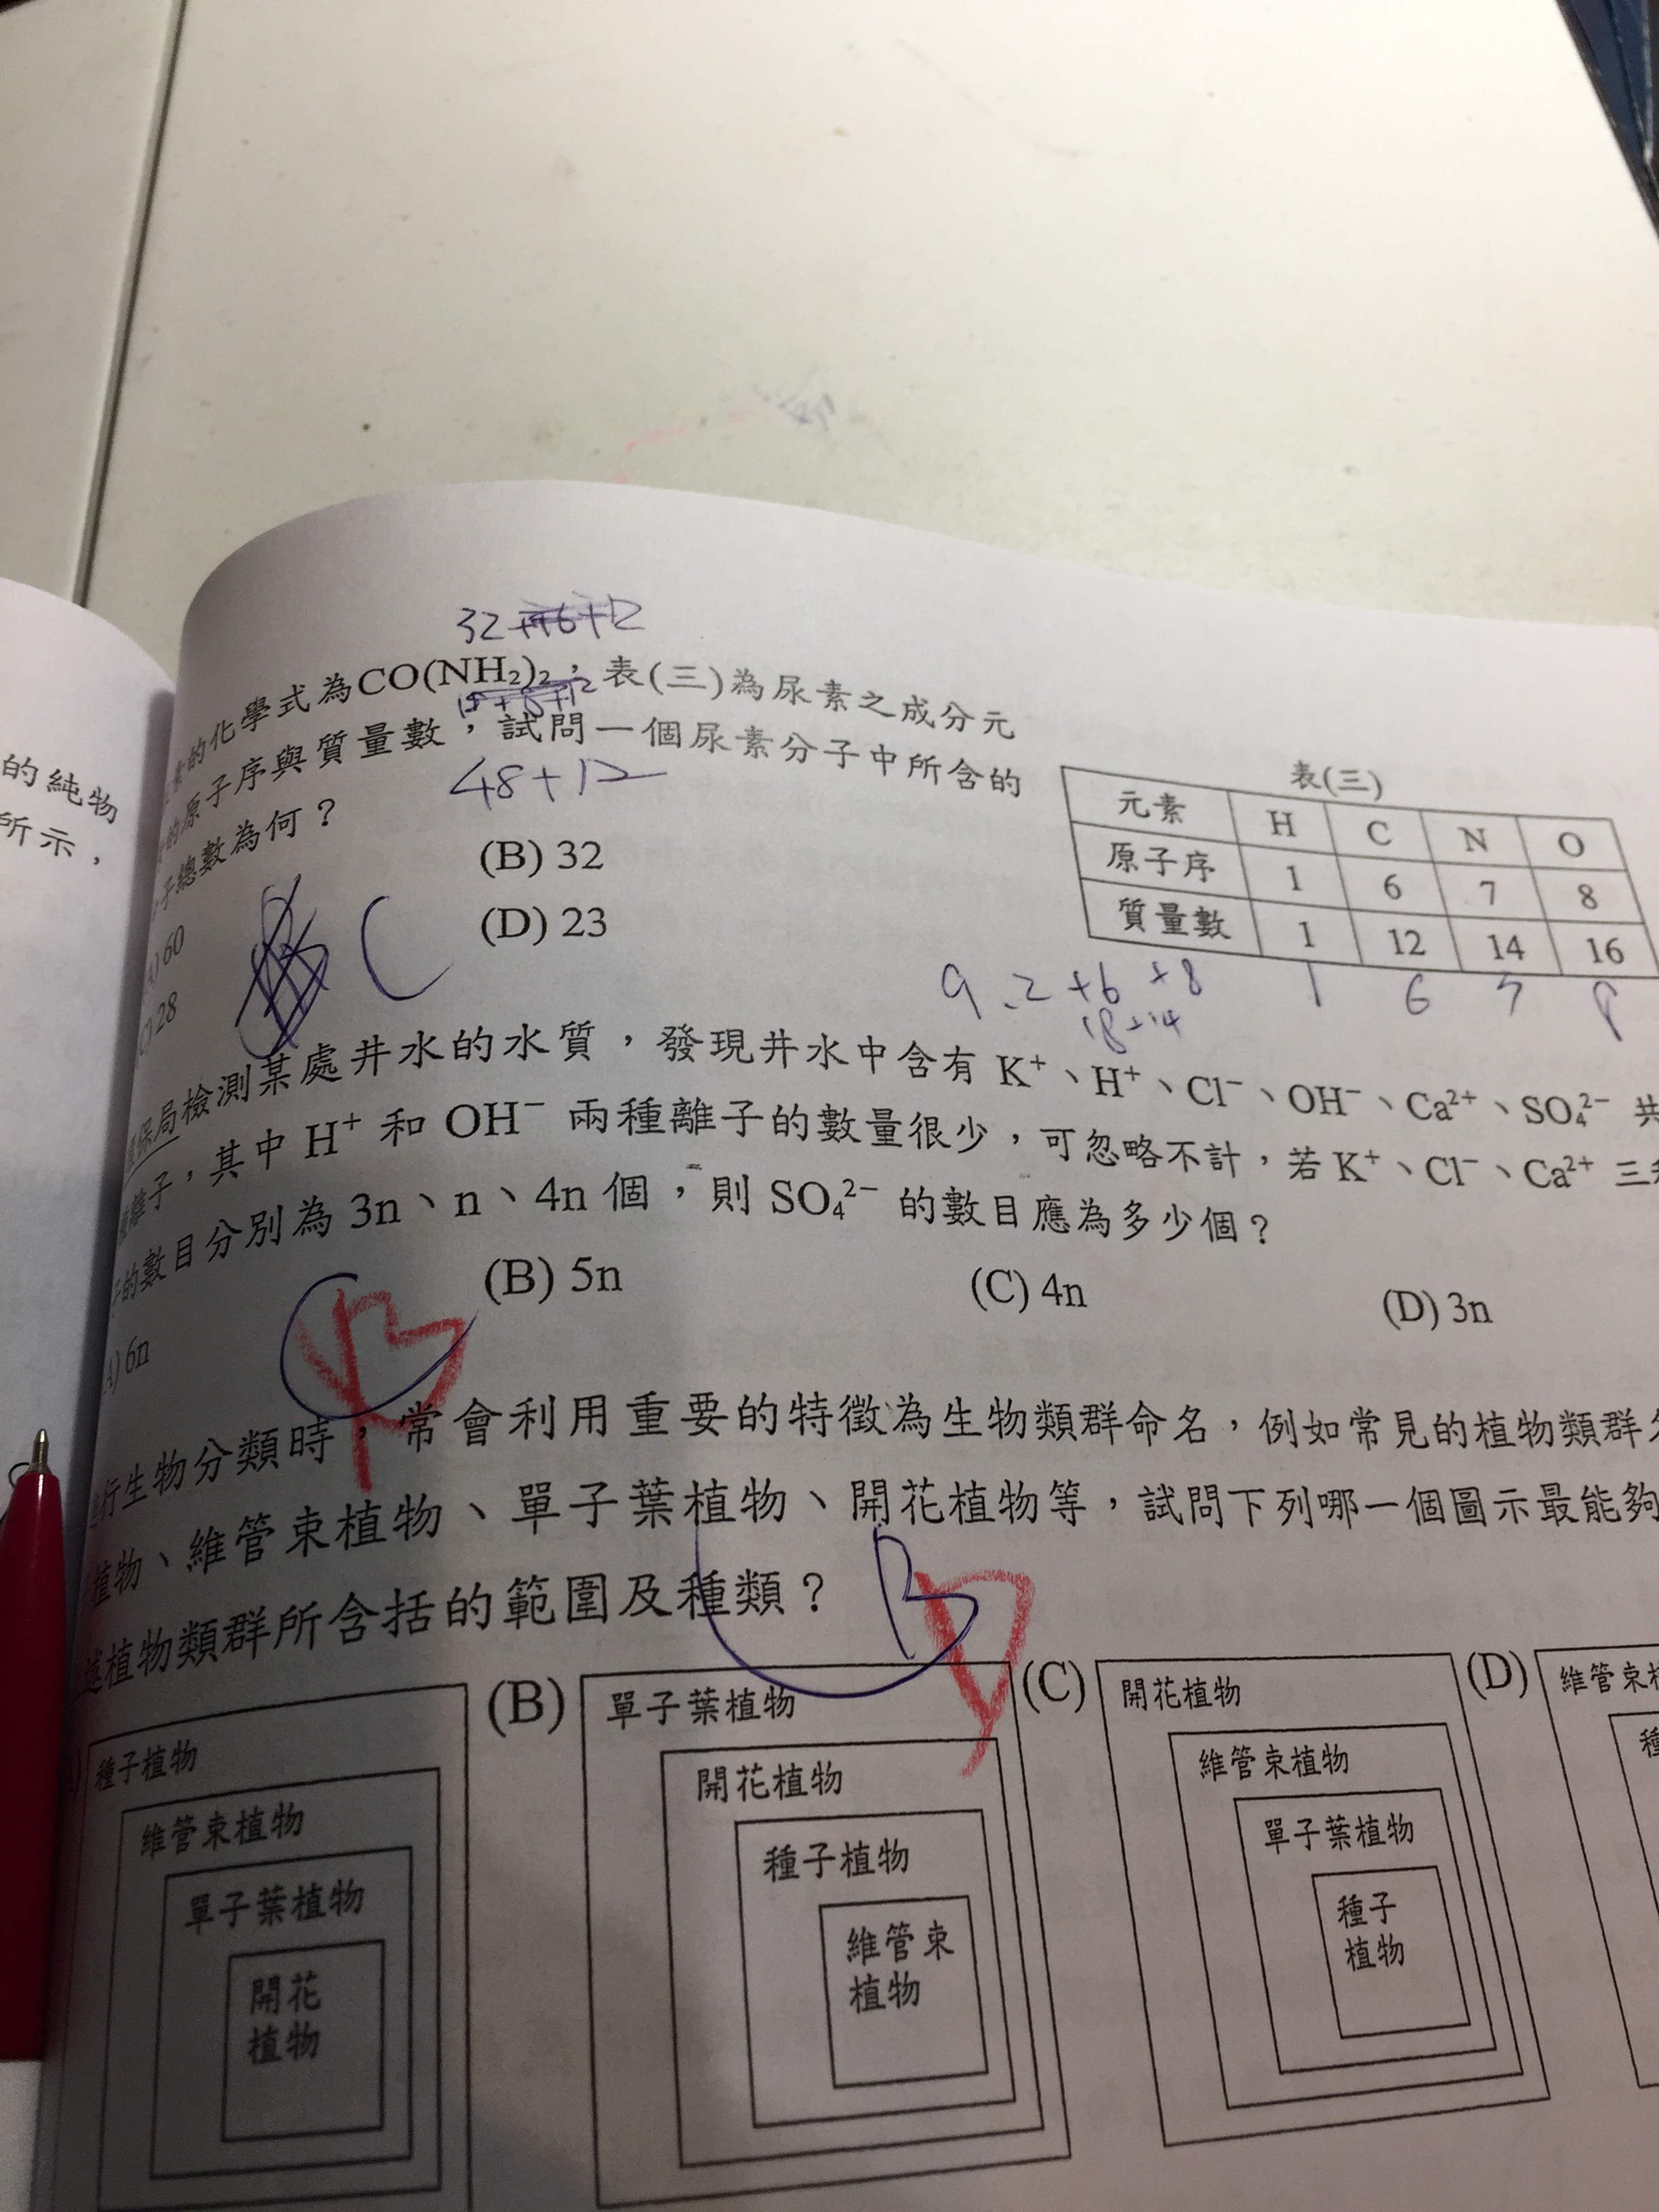 的純物
所示，
32
的化學式為CO(NH₂)₂，表(三)為尿素之成分元
的原子序與質量數，試問一個尿素分子中所含的
48+12
子總數為何？
(A) 60
(B) 32
(C) 28
(D) 23
C
表(三)
元素 H C N O
原子序 1 6 7 8
質量數 1 12 14 16
1 6 7 8
9.2+6+8
18+14
環保局檢測某處井水的水質，發現井水中含有 K⁺、H⁺、Cl⁻、OH⁻、Ca²⁺、SO₄²⁻ 共
離子，其中 H⁺ 和 OH⁻ 兩種離子的數量很少，可忽略不計，若 K⁺、Cl⁻、Ca²⁺ 三
的數目分別為 3n、n、4n 個，則 SO₄²⁻ 的數目應為多少個？
(A) 6n
(B) 5n
(C) 4n
(D) 3n
B
行生物分類時，常會利用重要的特徵為生物類群命名，例如常見的植物類群
植物、維管束植物、單子葉植物、開花植物等，試問下列哪一個圖示最能夠
述植物類群所含括的範圍及種類？
B
D
種子植物
維管束植物
單子葉植物
開花
植物
(B)
單子葉植物
開花植物
種子植物
維管束
植物
(C)
開花植物
維管束植物
單子葉植物
種子
植物
(D)
維管束
種